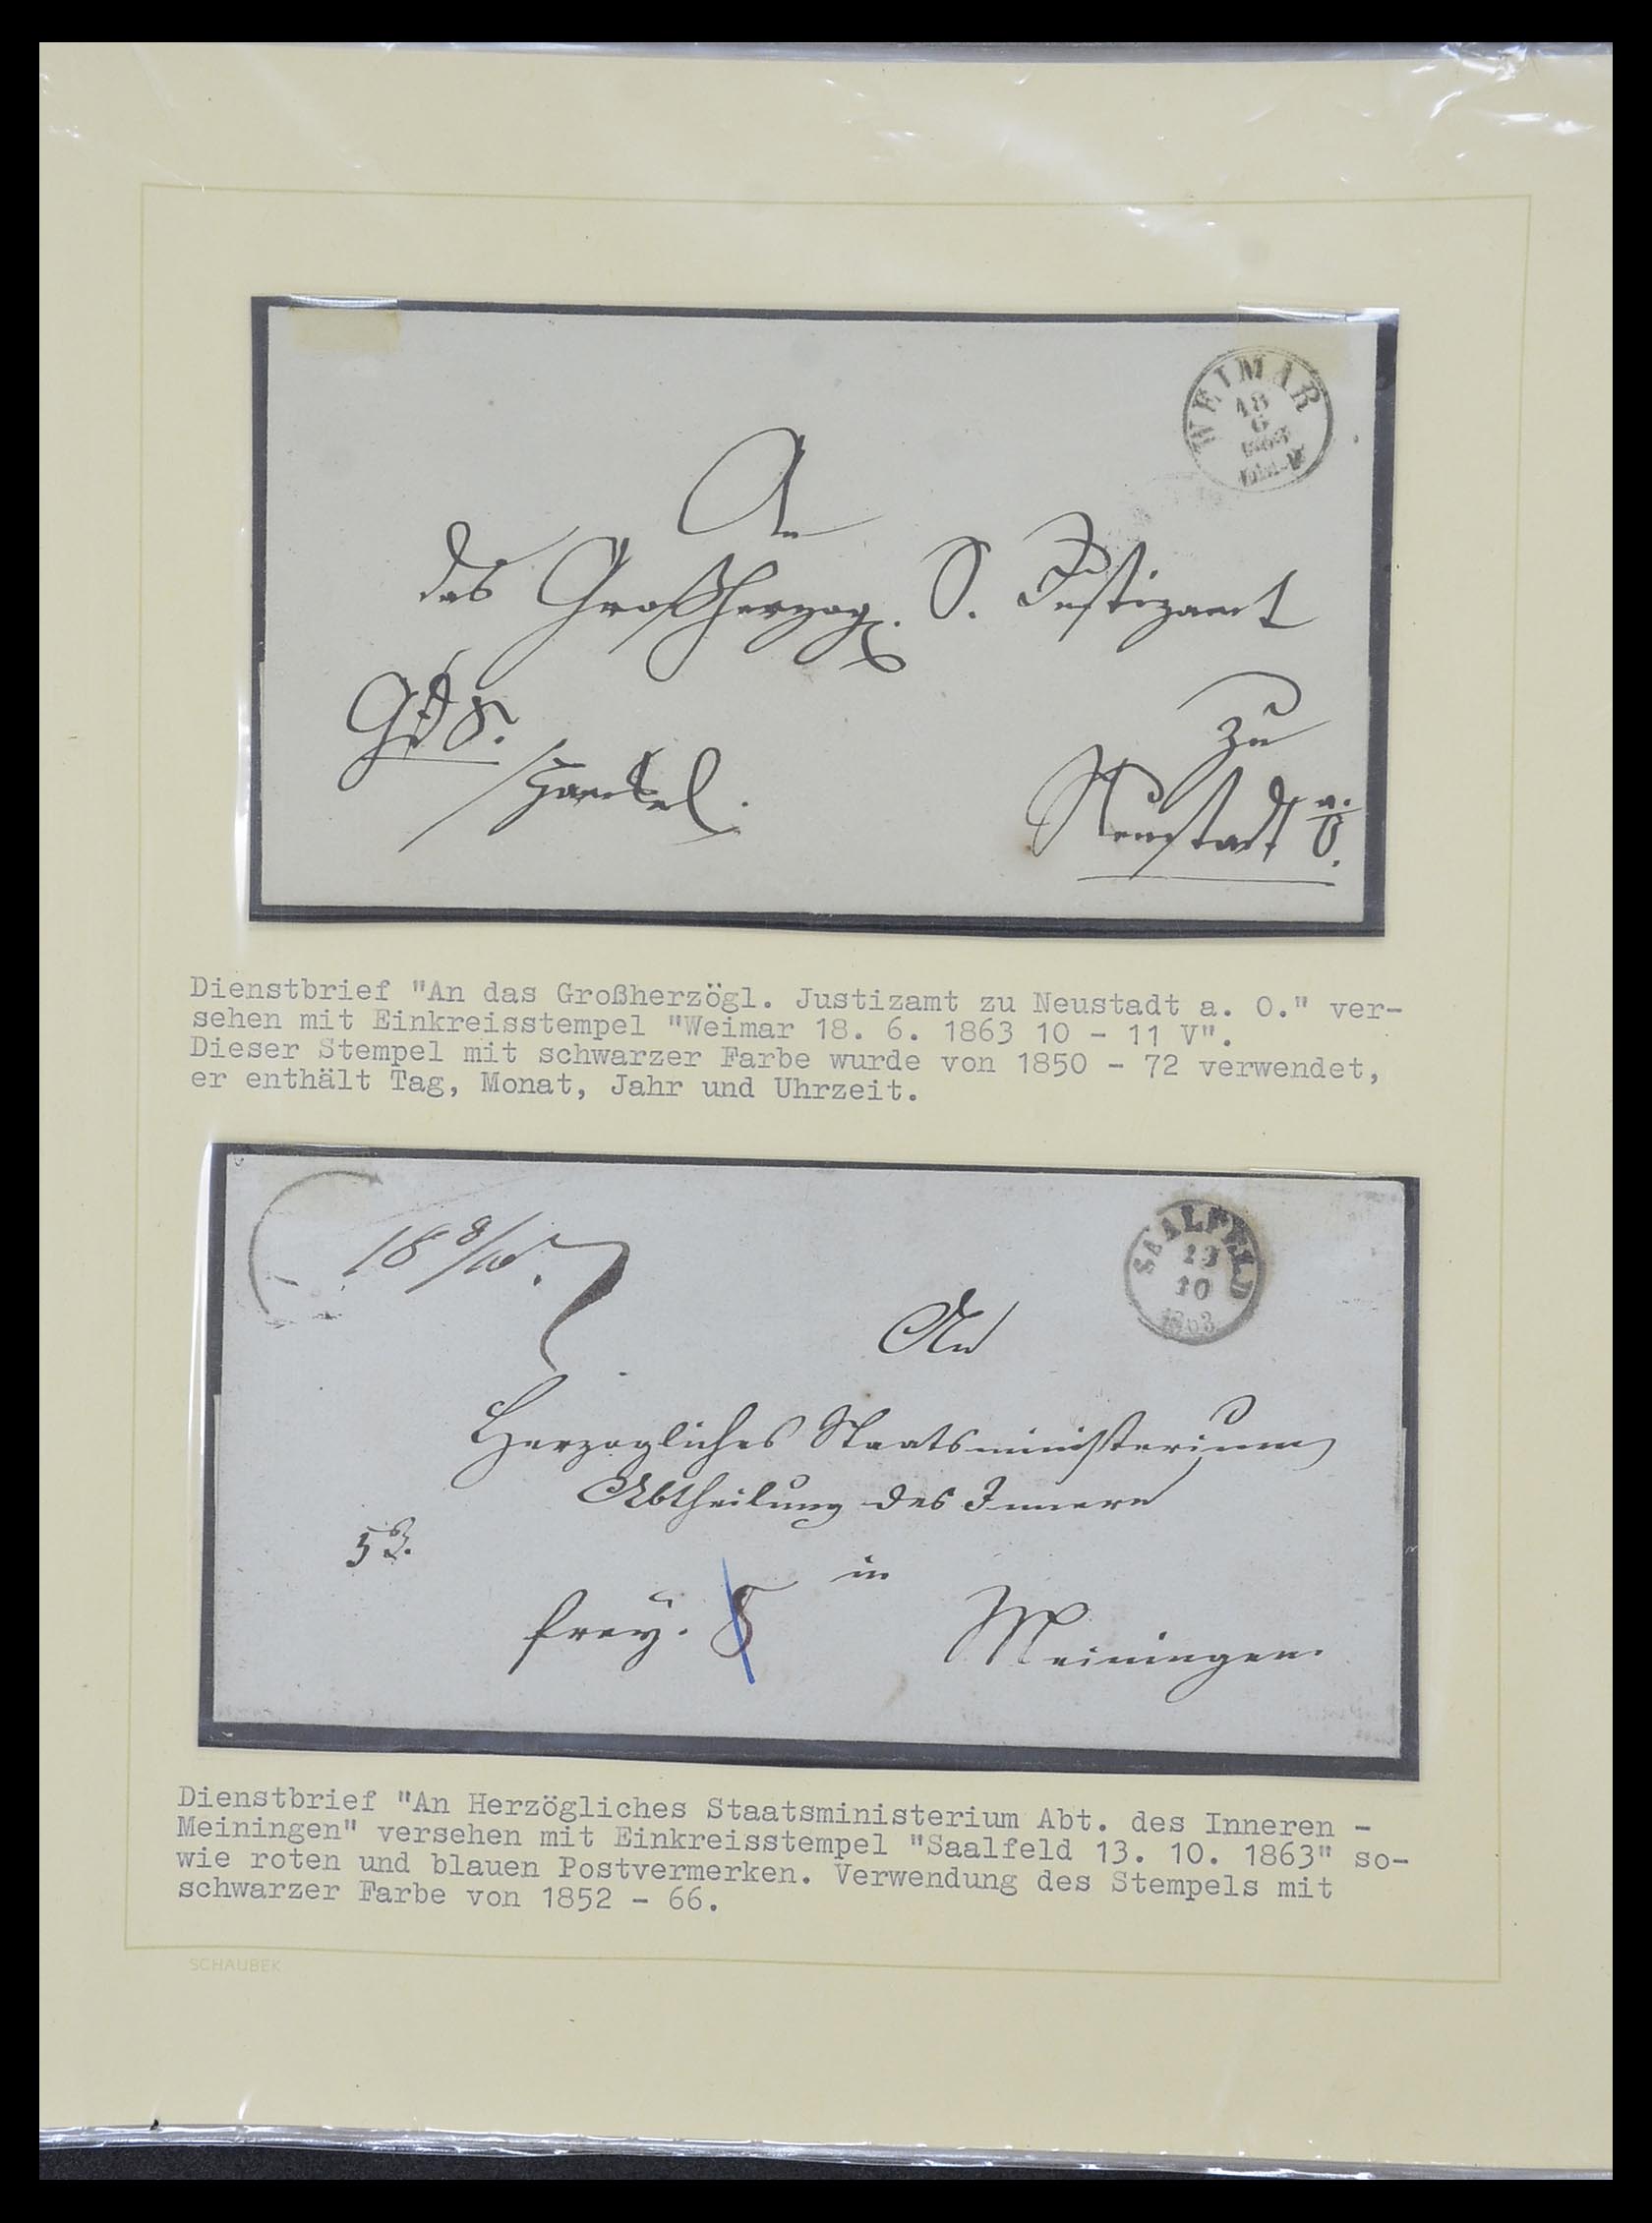 WEIMAR
18
6
1863
An
das Großherzog. S. Justizamt
zu
Neustadt a. O.
Dienstbrief "An das Großherzögl. Justizamt zu Neustadt a. O." ver-
sehen mit Einkreisstempel "Weimar 18. 6. 1863 10 - 11 V".
Dieser Stempel mit schwarzer Farbe wurde von 1850 - 72 verwendet,
er enthält Tag, Monat, Jahr und Uhrzeit.
SAALFELD
13
10
1863
An
Herzogliches Staatsministerium
Abtheilung des Innern
in
frey.
Meiningen.
Dienstbrief "An Herzögliches Staatsministerium Abt. des Inneren -
Meiningen" versehen mit Einkreisstempel "Saalfeld 13. 10. 1863" so-
wie roten und blauen Postvermerken. Verwendung des Stempels mit
schwarzer Farbe von 1852 - 66.
SCHAUBEK